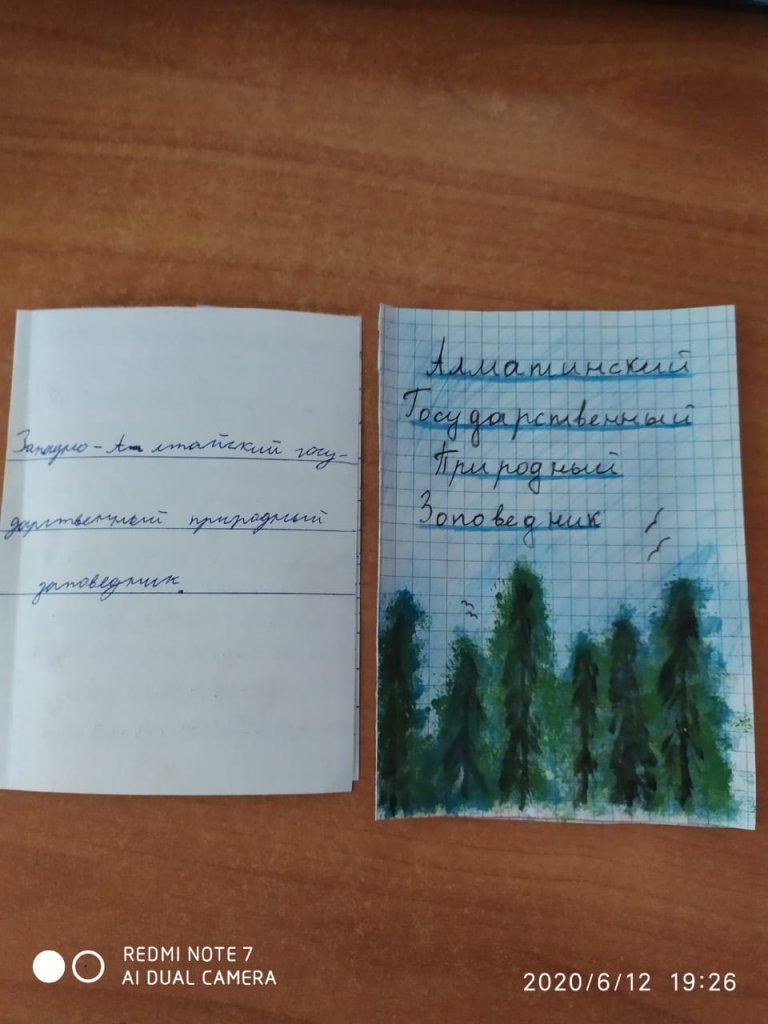 Западно-Алтайский госу-
дарственный природный
заповедник.
Алматинский
Государственный
Природный
Зоповедник
REDMI NOTE 7
AI DUAL CAMERA
2020/6/12 19:26